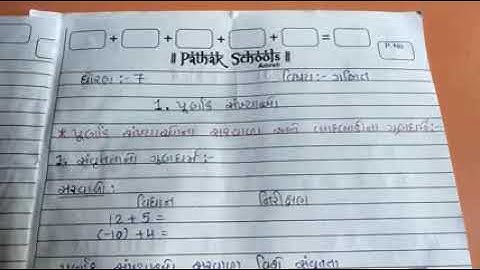 + + + + =
P.No
|| Pathak Schools ||
Amreli
ધોરણ :- 7 વિષય :- ગણિત
1. પૂર્ણાંક સંખ્યાઓ
* પૂર્ણાંક સંખ્યાઓના સરવાળા અને બાદબાકીના ગુણધર્મ :-
1. સંવૃતતાનો ગુણધર્મ :-
સરવાળો :
વિધાન નિરીક્ષણ
12 + 5 =
(-10) + 4 =
પૂર્ણાંક સંખ્યાઓ સરવાળા વિશે સંવૃતતા